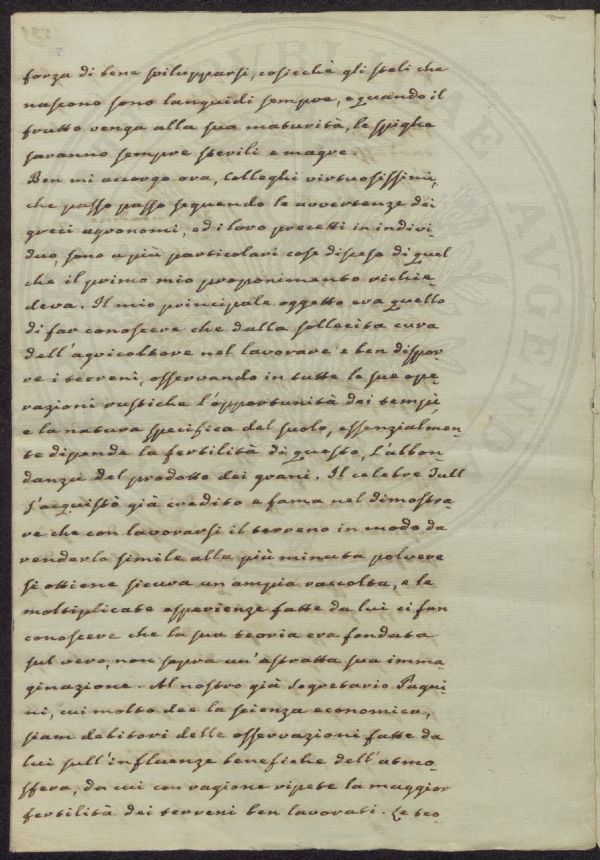 forza di bene svilupparsi, cosicchè gli steli che
nascono sono languidi sempre, e quando il
frutto venga alla sua maturità, le spighe
saranno sempre sterili e magre.
Ben mi accorgo ora, Colleghi virtuosissimi,
che passo passo seguendo le avvertenze dei
greci agronomi, ed i loro precetti in indivi-
duo, sono a più particolari cose disceso di quel
che il primo mio proponimento richie-
deva. Il mio principale oggetto era quello
di far conoscere che dalla sollecita cura
dell'agricoltore nel lavorare e ben dispor-
re i terreni, osservando in tutte le sue ope-
razioni rustiche l'opportunità dei tempi,
e la natura specifica del suolo, essenzialmen-
te dipende la fertilità di questo, l'abbon-
danza del prodotto dei grani. Il celebre Tull
s'acquistò già credito e fama nel dimostra-
re che con lavorarsi il terreno in modo da
renderlo simile alla più minuta polvere
si ottiene sicura un'ampia raccolta, e le
moltiplicate esperienze fatte da lui ci fan
conoscere che la sua teoria era fondata
sul vero, non sopra un'astratta sua imma-
ginazione. Al nostro già Segretario Paqui-
ni, cui molto dee la scienza economica,
siam debitori delle osservazioni fatte da
lui sull'influenze benefiche dell'atmo-
sfera, da cui con ragione ripete la maggior
fertilità dei terreni ben lavorati. Le teo-